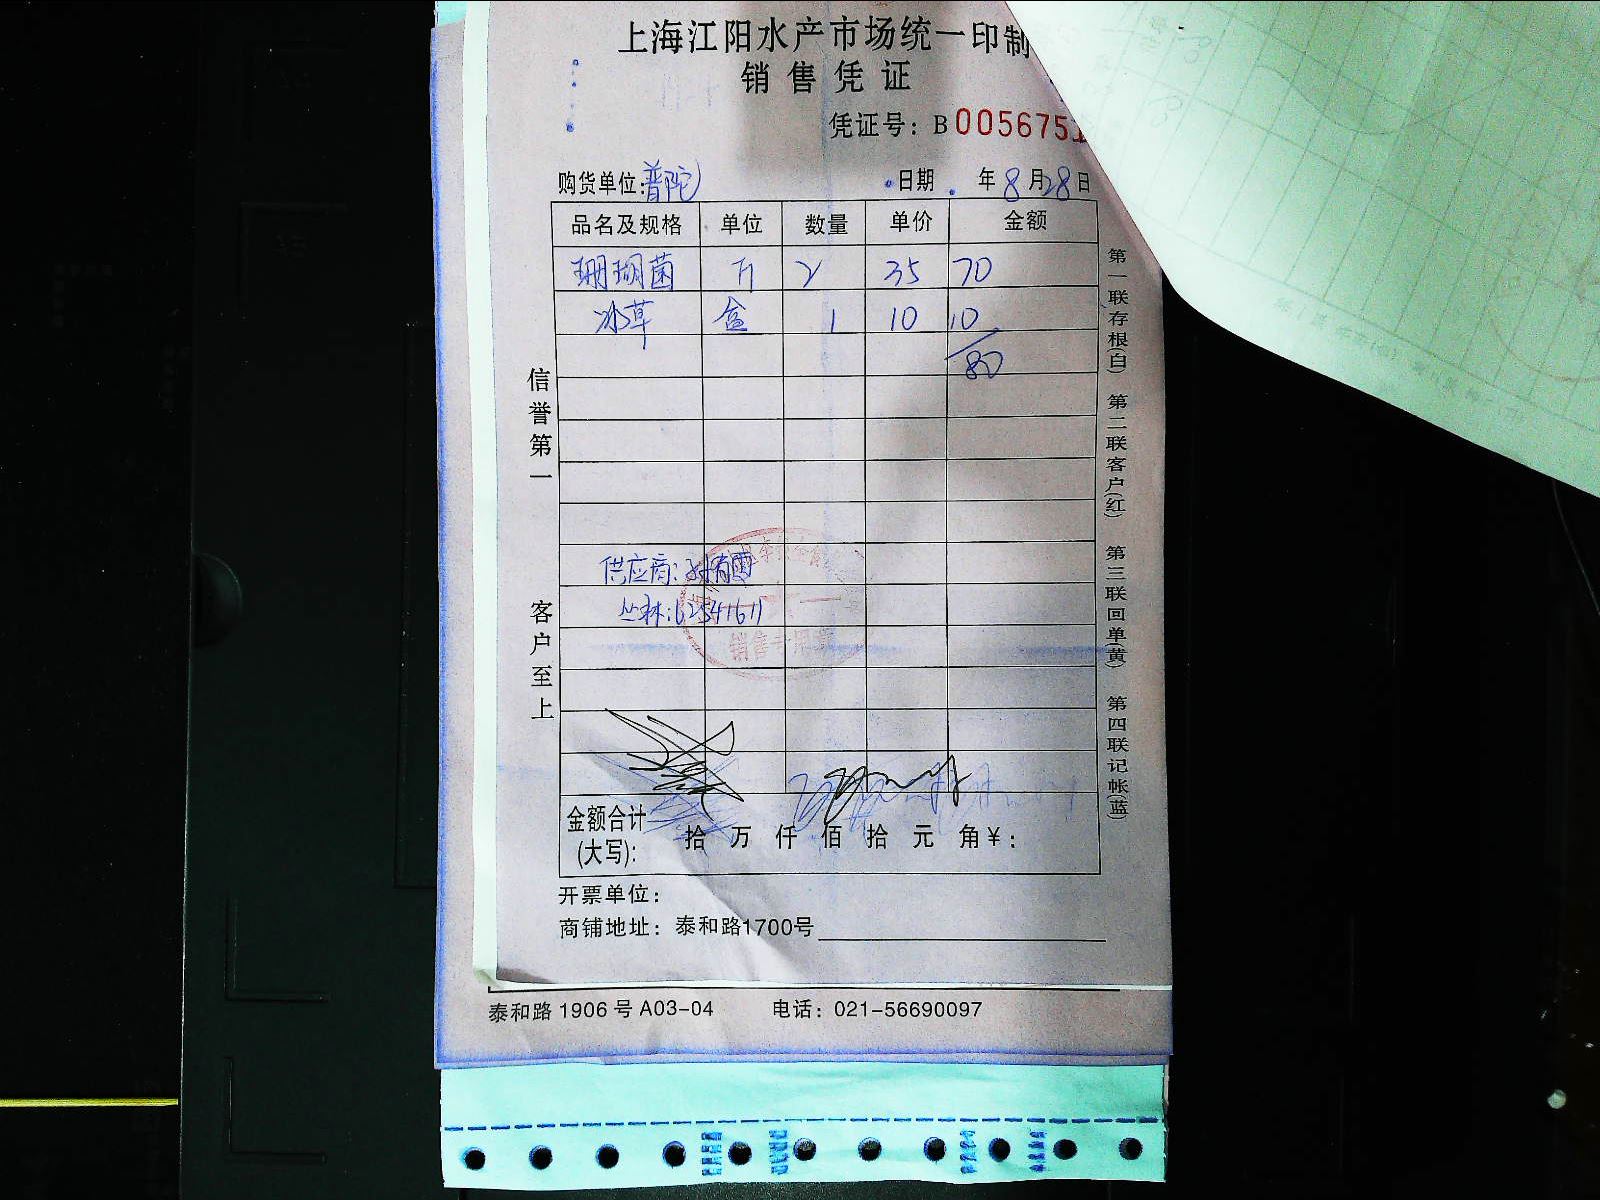 上海江阳水产市场统一印制
销售凭证
凭证号：B005675
购货单位：普陀 日期 年8月28日
品名及规格 单位 数量 单价 金额
珊瑚菌 斤 2 35 70
冰草 盒 1 10 10
80
信誉第一
客户至上
供应商：
丛林：62541611
销售专用章
金额合计(大写)： 拾 万 仟 佰 拾 元 角 ¥：
开票单位：
商铺地址：泰和路1700号
第一联存根(白) 第二联客户(红) 第三联回单(黄) 第四联记帐(蓝)
泰和路 1906 号 A03-04 电话：021-56690097